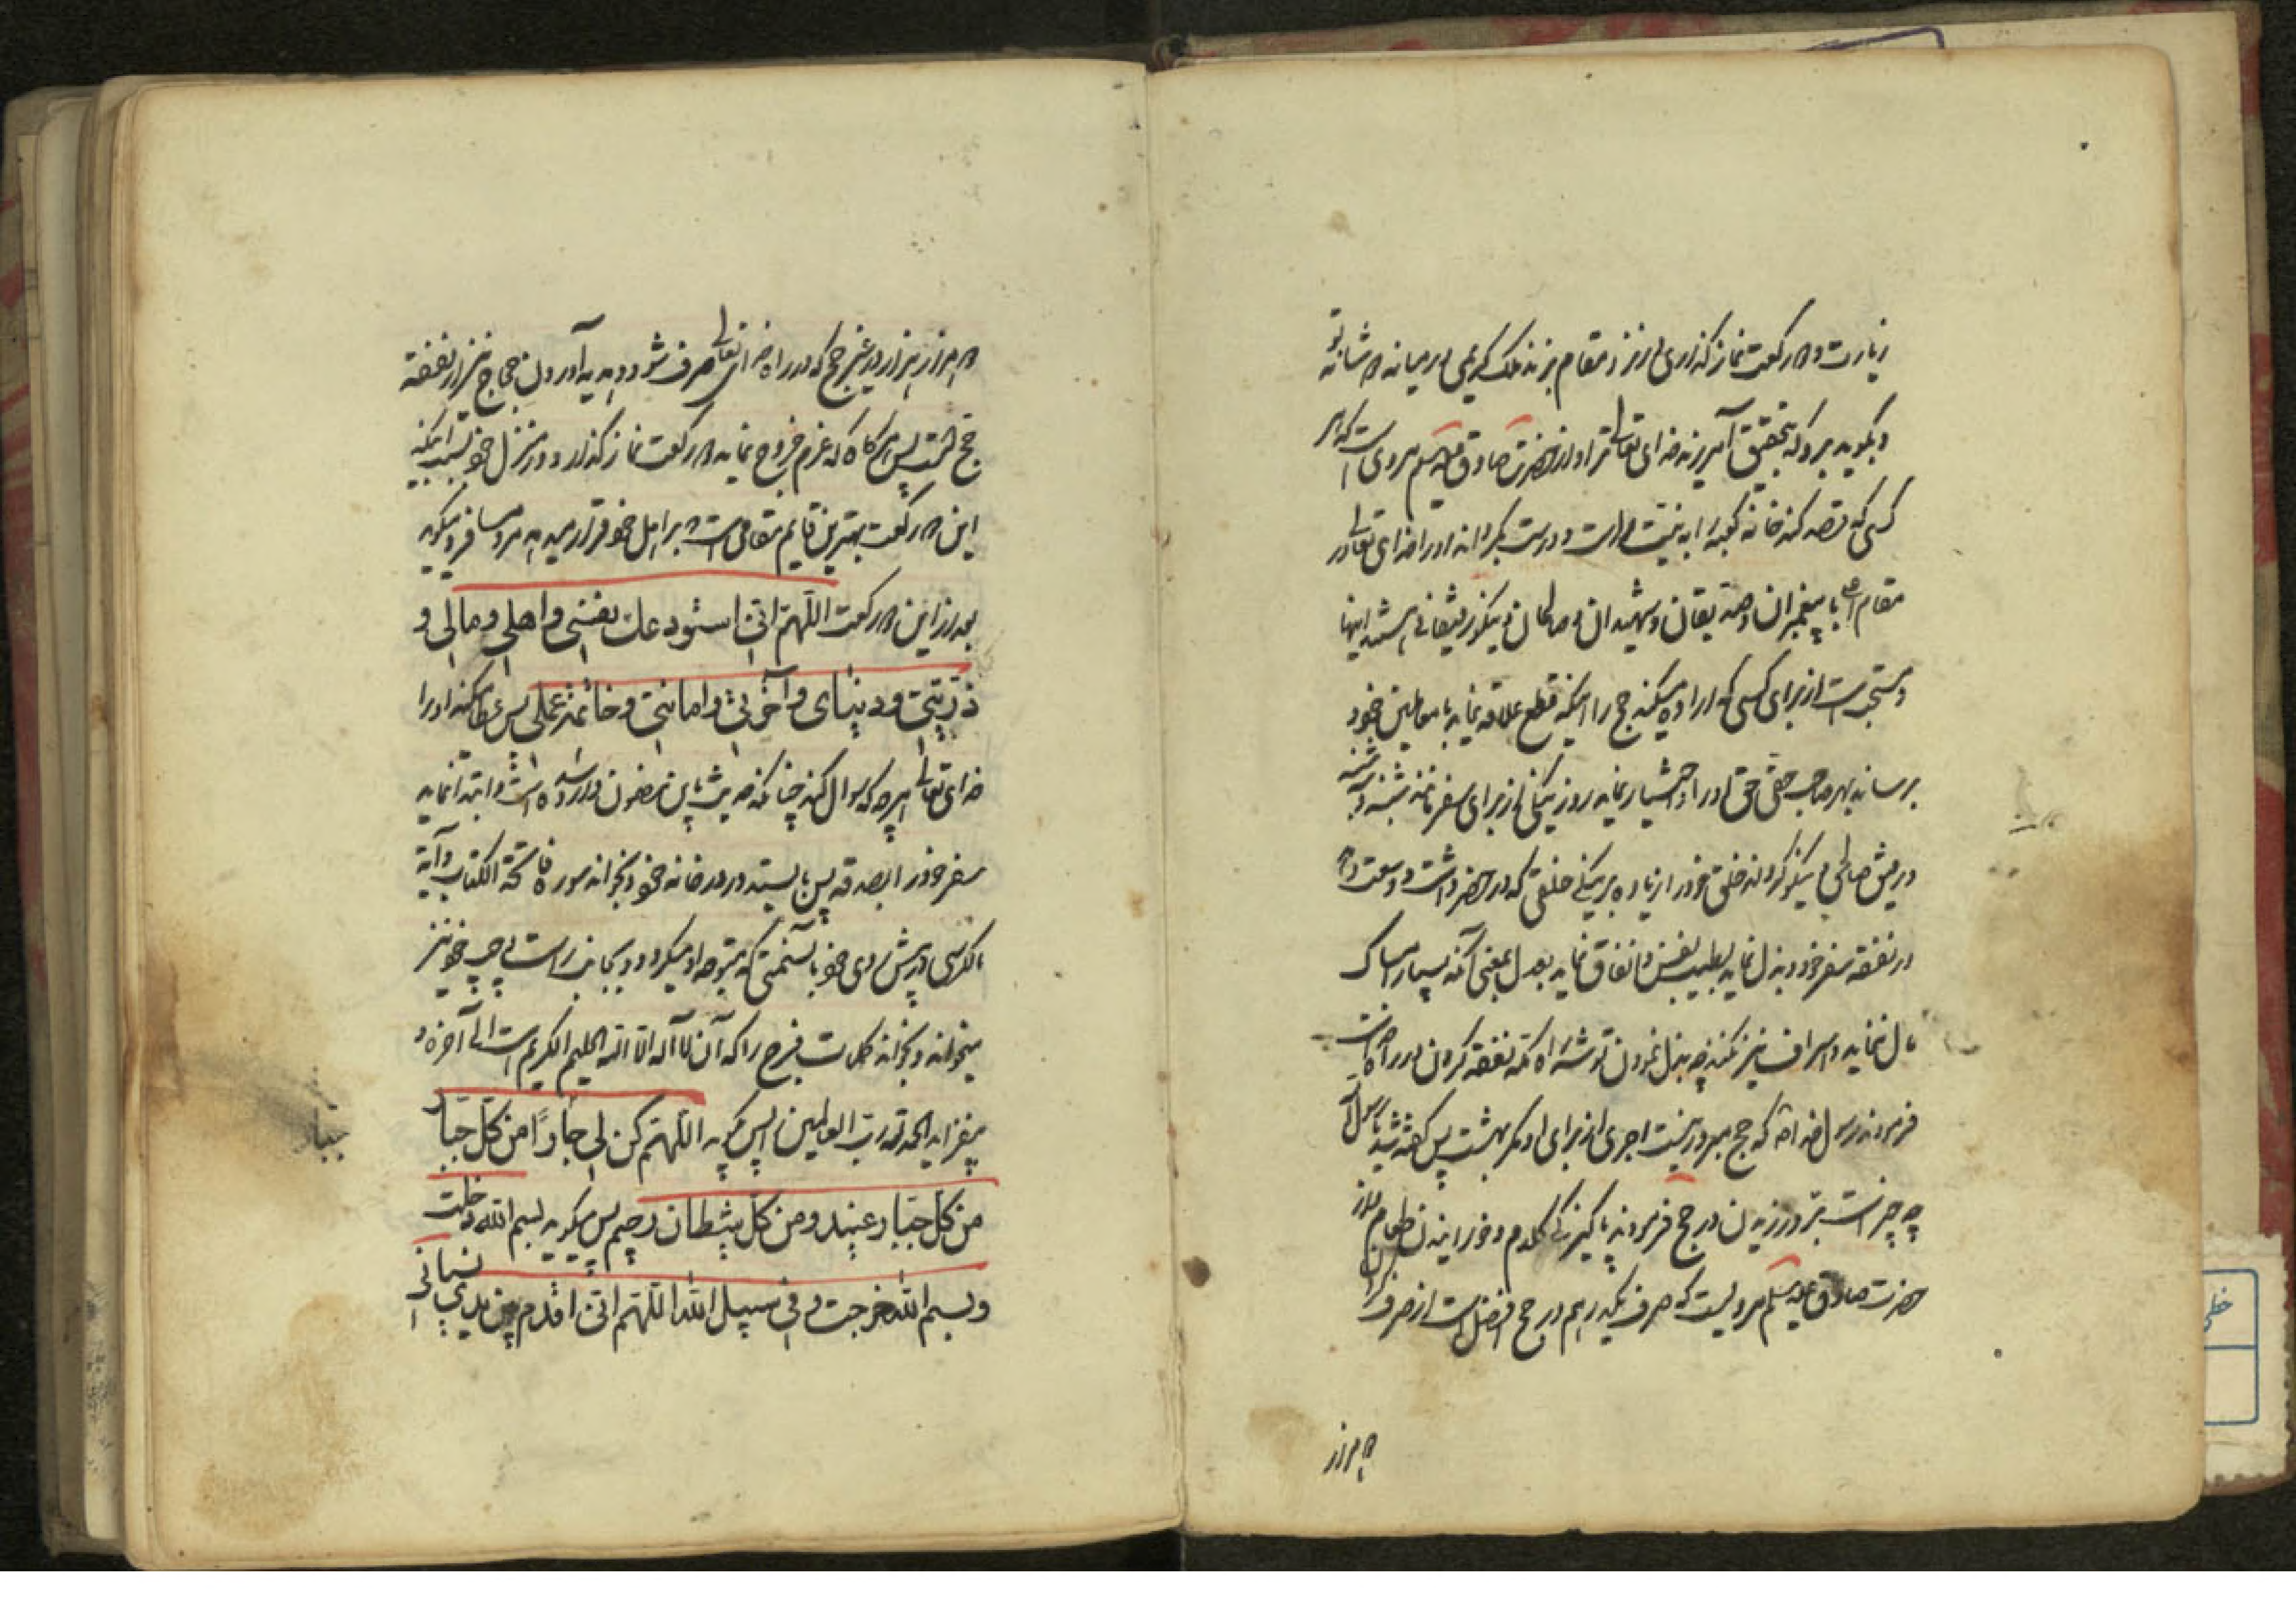 زیارت و دو رکعت نماز گذاری در نزد مقام بزند ملک کریمی در میانه دو شانه تو
و بگوید برو که بتحقیق آمرزید خدای تعالی ترا و از حضرت صادق علیه السلم مروی است که هر
کسی که قصد کند خانه کعبه را به نیت و درست بگرداند او را خدای تعالی در
مقام با پیغمبران و صدیقان و شهیدان و صالحان و نیکو رفیقانی باشند اینها
و مستحب است از برای کسی که اراده میکند حج را اینکه قطع علاقه نماید با معاملین خود
برساند بهر صاحب حقی حق او را و اختیار نماید روز نیکی از برای سفر مانند شنبه و سه شنبه
و رفیق صالحی و نیکو گرداند خلق خود را زیاده بر نیکی خلقی که در حضر داشت و وسعت دهد
در نفقه سفر خود و بذل نماید بطیب نفس و انفاق نماید بعدل یعنی آنکه بسیار امساک
مال ننماید و اسراف نیز نکند چه بذل نمودن توشه راه مکه نفقه کردن در راه خداست
فرمودند رسول خدا که حج مبرور نیست اجری از برای او مگر بهشت پس گفته شد یا رسول الله
چه چیز است بر ورزیدن در حج فرمودند پاکیزگی کلام و خورانیدن طعام و از
حضرت صادق علیه السلم مرویست که صرف یکدرهم در حج افضل است از صرف کردن
دو هزار
دو هزار هزار در غیر حج که در راه خدای تعالی صرف شود و هدیه آوردن حجاج نیز از نفقه
حج است پس هر گاه که عزم خروج نماید دو رکعت نماز گذارد در منزل خود بسبب اینکه
این دو رکعت بهترین قایم مقامی است که بر اهل خود قرار میدهد مرد مسافر و میگوید
بعد از این دو رکعت اللهم انی استودعک نفسی و اهلی و مالی و
ذریتی و دنیای و آخرتی و امانتی و خاتمة عملی پس عطا میکند او را
خدای تعالی هر چه که سوال کند چنانکه حدیث باین مضمون وارد شده است و ابتدا نماید
سفر خود را بصدقه پس بایستد در در خانه خود و بخواند سوره فاتحة الکتاب و آیة
الکرسی در پیش روی خود بآنسمتی که متوجه او میگردد و بجانب راست و چپ خود نیز
میخواند و بخواند کلمات فرج را که آن لا آله الا الله الحلیم الکریم است الی آخره و
میفزاید الحمد لله رب العالمین پس گوید اللهم کن لی جارا من کل جبار
من کل جبار عنید و من کل شیطان رجیم پس میگوید بسم الله دخلت
و بسم الله خرجت و فی سبیل الله اللهم انی اقدم بین یدی نسیانی